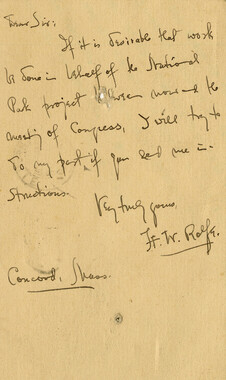 Dear Sir:
If it is desirable that work
be done in behalf of the National
Park project between now and the
meeting of Congress, I will try to
do my part if you send me in-
structions.
Very truly yours,
H. W. Rolfe.
Concord, Mass.